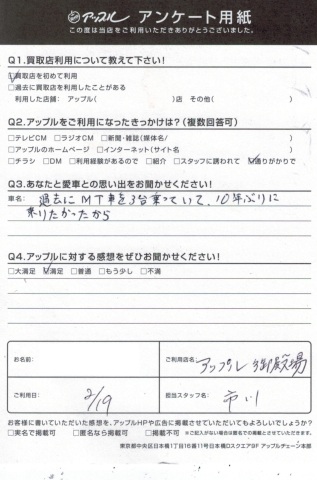 アップル アンケート用紙
この度は当店をご利用いただきありがとうございました。
Q1.買取店利用について教えて下さい!
☑買取店を初めて利用
□過去に買取店を利用したことがある
利用した店舗: アップル( )店 その他( )
Q2.アップルをご利用になったきっかけは?(複数回答可)
□テレビCM □ラジオCM □新聞・雑誌(媒体名/ )
□アップルのホームページ □インターネット(サイト名 )
□チラシ □DM □利用経験があるので □紹介 □スタッフに誘われて ☑通りがかりで
Q3.あなたと愛車との思い出をお聞かせください!
車名: 過去にMT車を3台乗っていて、10年ぶりに
乗りたかったから
Q4.アップルに対する感想をぜひお聞かせください!
□大満足 ☑満足 □普通 □もう少し □不満
お名前:
ご利用店名: アップル 御殿場
ご利用日: 2/19
担当スタッフ名: 市川
お客様に書いていただいた感想を、アップルHPや広告に掲載させていただいてもよろしいでしょうか?
□実名で掲載可 □匿名なら掲載可 □掲載不可 ※ご記入がない場合は匿名での掲載とさせていただきます。
東京都中央区日本橋1丁目16番11号日本橋Dスクエア9F アップルチェーン本部